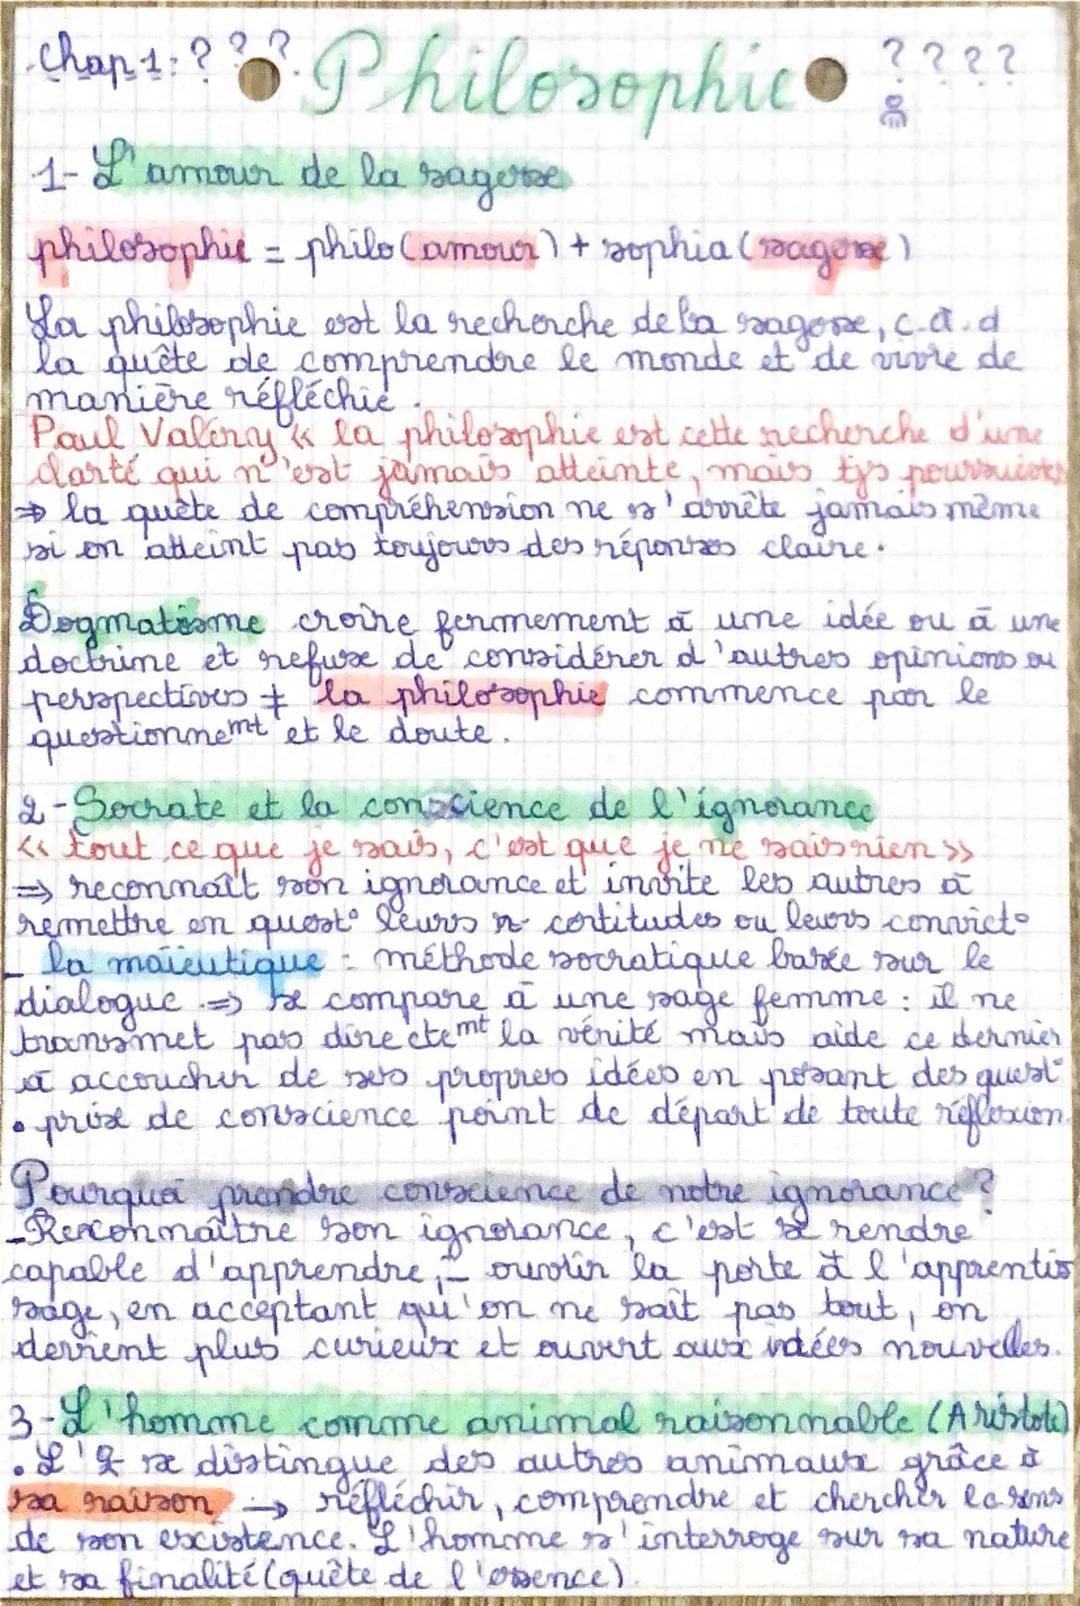 Chap 1: ? ? ? Philosophie ? ? ? ?
1- L'amour de la sagesse
philosophie = philo (amour) + sophia (sagesse)
La philosophie est la recherche de la sagesse, c.à.d
la quête de comprendre le monde et de vivre de
manière réfléchie.
Paul Valéry « la philosophie est cette recherche d'une
clarté qui n'est jamais atteinte, mais tjs poursuivie»
⇒ la quête de compréhension ne s'arrête jamais même
si on atteint pas toujours des réponses claire.
Dogmatisme croire fermement à une idée ou à une
doctrine et refuse de considérer d'autres opinions ou
perspectives ≠ la philosophie commence par le
questionnemt et le doute.
2-Socrate et la conscience de l'ignorance
« tout ce que je sais, c'est que je ne sais rien »
⇒ reconnaît son ignorance et invite les autres à
remettre en quest° leurs certitudes ou leurs convict°
- la maïeutique : méthode socratique basée sur le
dialogue ⇒ se compare à une sage femme : il ne
transmet pas directemt la vérité mais aide ce dernier
à accoucher de ses propres idées en posant des quest°
• prise de conscience point de départ de toute réflexion.
Pourquoi prendre conscience de notre ignorance ?
-Reconnaître son ignorance, c'est se rendre
capable d'apprendre, - ouvrir la porte à l'apprentis
sage, en acceptant qu'on ne sait pas tout, on
devient plus curieux et ouvert aux idées nouvelles.
3-L'homme comme animal raisonnable (Aristote)
• L' se distingue des autres animaux grâce à
sa raison → réfléchir, comprendre et chercher le sens
de son existence. L'homme s'interroge sur sa nature
et sa finalité (quête de l'essence).